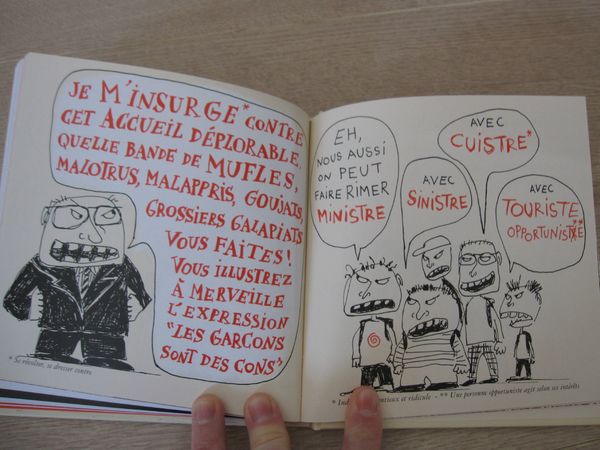 JE M'INSURGE* CONTRE
CET ACCUEIL DÉPLORABLE,
QUELLE BANDE DE MUFLES,
MALOTRUS, MALAPPRIS, GOUJATS,
GROSSIERS GALAPIATS
VOUS FAITES !
VOUS ILLUSTREZ
À MERVEILLE
L'EXPRESSION
"LES GARÇONS
SONT DES CONS"
* Se révolter, se dresser contre
EH,
NOUS AUSSI
ON PEUT
FAIRE RIMER
MINISTRE
AVEC
SINISTRE
AVEC
CUISTRE*
AVEC
TOURISTE
OPPORTUNISTE**
* et ridicule - ** Une personne opportuniste agit selon ses intérêts